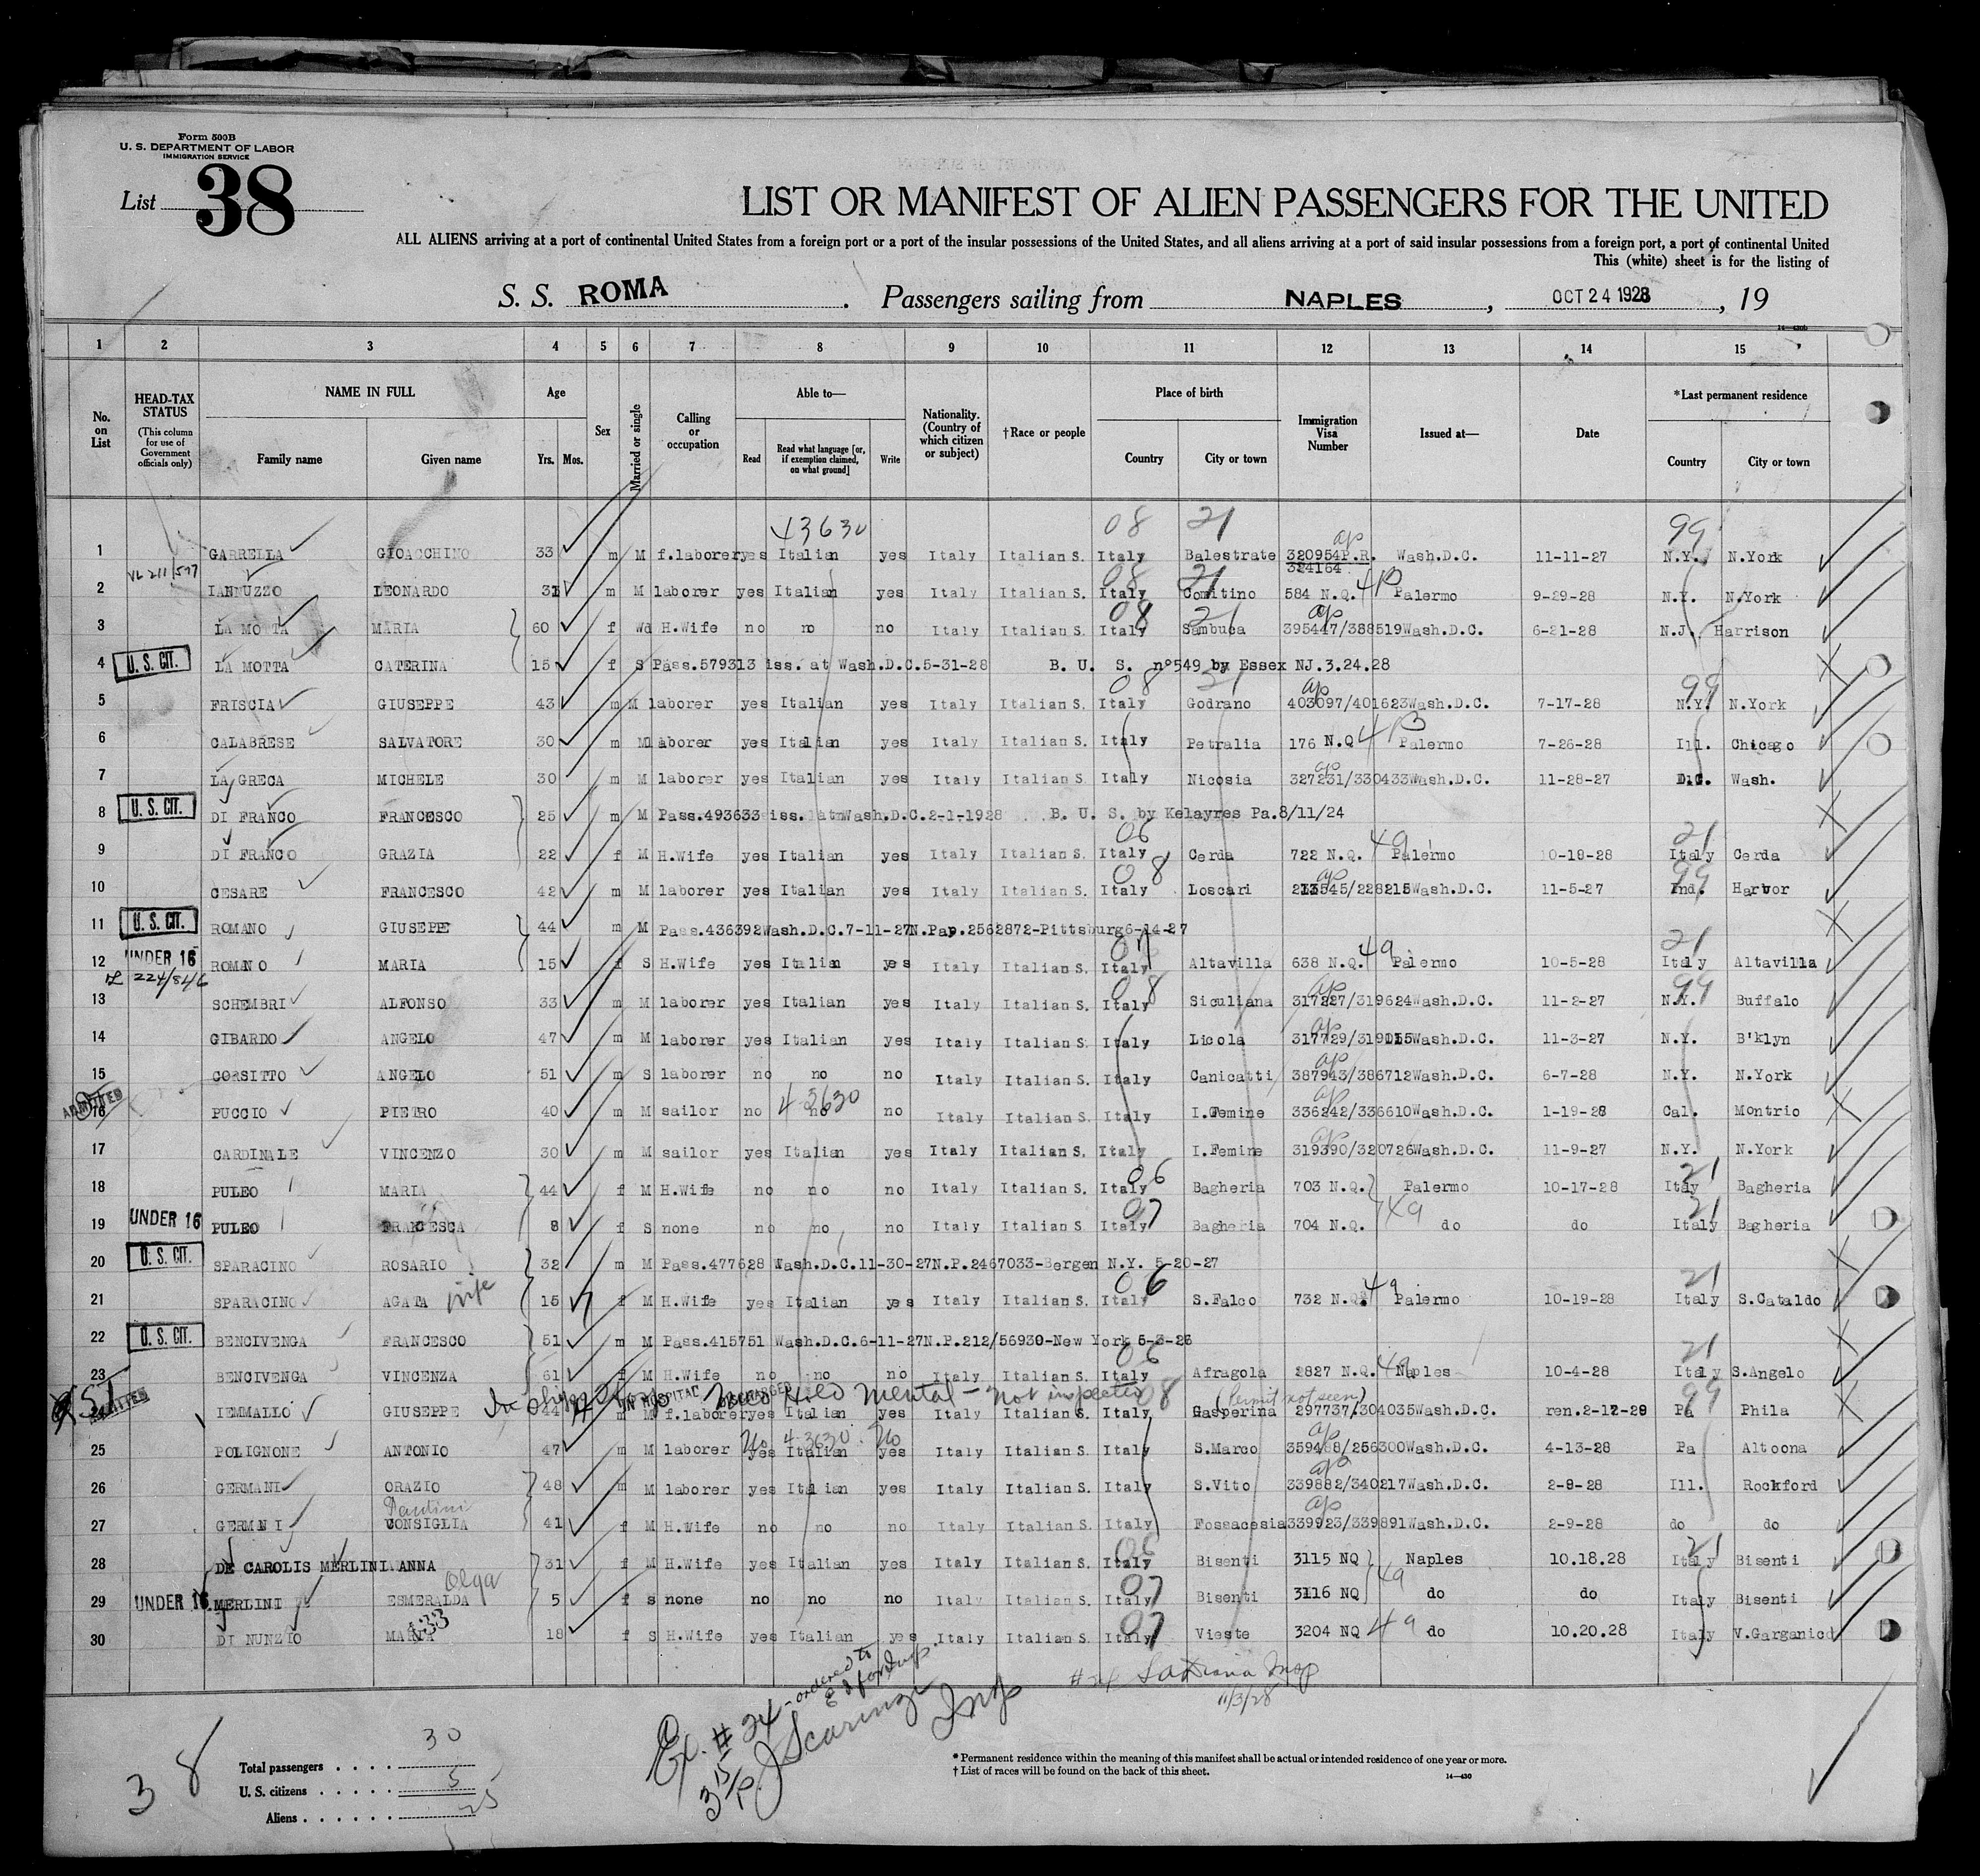 Form 500B
U. S. DEPARTMENT OF LABOR
IMMIGRATION SERVICE
List 38
LIST OR MANIFEST OF ALIEN PASSENGERS FOR THE UNITED
ALL ALIENS arriving at a port of continental United States from a foreign port or a port of the insular possessions of the United States, and all aliens arriving at a port of said insular possessions from a foreign port, a port of continental United
This (white) sheet is for the listing of
S. S. ROMA . Passengers sailing from NAPLES , OCT 24 1928 , 19
14—430b
1 2 3 4 5 6 7 8 9 10 11 12 13 14 15
No. on List
HEAD-TAX STATUS (This column for use of Government officials only)
NAME IN FULL Family name Given name
Age Yrs. Mos.
Sex
Married or single
Calling or occupation
Able to— Read Read what language [or, if exemption claimed, on what ground] Write
Nationality. (Country of which citizen or subject)
†Race or people
Place of birth Country City or town
Immigration Visa Number
Issued at—
Date
*Last permanent residence Country City or town
43630 08 21 99
1 GARRELLA GIOACCHINO 33 m M f.laborer yes Italian yes Italy Italian S. Italy Balestrate 320954P.R. Wash.D.C. 11-11-27 N.Y. N.York
324164
2 IANNUZZO LEONARDO 31 m M laborer yes Italian yes Italy Italian S. Italy Comitino 584 N.Q. Palermo 9-29-28 N.Y. N.York
3 LA MOTTA MARIA 60 f Wd H.Wife no no no Italy Italian S. Italy Sambuca 395447/388519 Wash.D.C. 6-21-28 N.J. Harrison
4 U. S. CIT. LA MOTTA CATERINA 15 f S Pass.579313 iss. at Wash.D.C.5-31-28 B. U. S. n°549 by Essex NJ.3.24.28
5 FRISCIA GIUSEPPE 43 m M laborer yes Italian yes Italy Italian S. Italy Godrano 403097/401623 Wash.D.C. 7-17-28 N.Y. N.York
6 CALABRESE SALVATORE 30 m M laborer yes Italian yes Italy Italian S. Italy Petralia 176 N.Q Palermo 7-26-28 Ill. Chicago
7 LA GRECA MICHELE 30 m M laborer yes Italian yes Italy Italian S. Italy Nicosia 327231/330433 Wash.D.C. 11-28-27 D.C. Wash.
8 U. S. CIT. DI FRANCO FRANCESCO 25 m M Pass.493633 iss. atm Wash.D.C.2-1-1928 B. U. S. by Kelayres Pa.8/11/24
9 DI FRANCO GRAZIA 22 f M H.Wife yes Italian yes Italy Italian S. Italy Cerda 722 N.Q. Palermo 10-18-28 Italy Cerda
10 CESARE FRANCESCO 42 m M laborer yes Italian yes Italy Italian S. Italy Loscari Wash.D.C. 11-5-27 Ind. Harbor
11 U. S. CIT. ROMANO GIUSEPPE 44 m M Pass.436392 Wash.D.C.7-11-27 N.Pap.2562872-Pittsburg 6-14-27
12 UNDER 16 ROMANO MARIA 15 f S H.Wife yes Italian yes Italy Italian S. Italy Altavilla 638 N.Q. Palermo 10-5-28 Italy Altavilla
224/846
13 SCHEMBRI ALFONSO 33 m M laborer yes Italian yes Italy Italian S. Italy Siculiana 317227/319624 Wash.D.C. 11-2-27 N.Y. Buffalo
14 GIBARDO ANGELO 47 m M laborer yes Italian yes Italy Italian S. Italy Licola Wash.D.C. 11-3-27 N.Y. B'klyn
15 CORSITTO ANGELO 51 m S laborer no no no Italy Italian S. Italy Canicatti 387943/386712 Wash.D.C. 6-7-28 N.Y. N.York
16 ADMITTED PUCCIO PIETRO 40 m M sailor no no no Italy Italian S. Italy I.Femine 336242/336610 Wash.D.C. 1-19-28 Cal. Montrio
17 CARDINALE VINCENZO 30 m M sailor yes Italian yes Italy Italian S. Italy I.Femine 319390/320726 Wash.D.C. 11-9-27 N.Y. N.York
18 PULEO MARIA 44 f M H.Wife no no no Italy Italian S. Italy Bagheria 703 N.Q. Palermo 10-17-28 Italy Bagheria
19 UNDER 16 PULEO FRANCESCA 8 f S none no no no Italy Italian S. Italy Bagheria 704 N.Q. do do Italy Bagheria
20 U. S. CIT. SPARACINO ROSARIO 32 m M Pass.477628 Wash.D.C.11-30-27 N.P.2467033-Bergen N.Y. 5-20-27
21 SPARACINO AGATA wife 15 f M H.Wife yes Italian yes Italy Italian S. Italy S.Falco 732 N.Q. Palermo 10-19-28 Italy S.Cataldo
22 U. S. CIT. BENCIVENGA FRANCESCO 51 m M Pass.415751 Wash.D.C.6-11-27 N.P.212/56930-New York
23 BENCIVENGA VINCENZA 61 f M H.Wife no no no Italy Italian S. Italy Afragola 2827 N.Q. Naples 10-4-28 Italy S.Angelo
IN HOSPITAL DISCHARGED Hold mental - not inspected (Permit not seen)
24 ADMITTED IEMMALLO GIUSEPPE 44 M f.laborer yes Italian yes Italy Italian S. Italy Gasperina 297737/304035 Wash.D.C. ren.2-12-28 Pa Phila
25 POLIGNONE ANTONIO 47 m M laborer yes Italian yes Italy Italian S. Italy S.Marco Wash.D.C. 4-13-28 Pa Altoona
26 GERMANI ORAZIO 48 m M laborer yes Italian yes Italy Italian S. Italy S.Vito 339882/340217 Wash.D.C. 2-8-28 Ill. Rockford
27 GERMANI CONSIGLIA 41 f M H.Wife no no no Italy Italian S. Italy Fossacesia 339923/339891 Wash.D.C. 2-9-28 do do
28 DE CAROLIS MERLINI ANNA 31 f M H.Wife yes Italian yes Italy Italian S. Italy Bisenti 3115 NQ Naples 10.18.28 Italy Bisenti
Olga
29 UNDER 16 MERLINI ESMERALDA 5 f s none no no no Italy Italian S. Italy Bisenti 3116 NQ do do Italy Bisenti
30 DI NUNZIO MARIA 18 f S H.Wife yes Italian yes Italy Italian S. Italy Vieste 3204 NQ do 10.20.28 Italy V.Garganico
#24 Insp
11/3/28
Ex. # 24 - ordered to
Scaringi Insp
38
Total passengers 30
U. S. citizens 5
Aliens 25
* Permanent residence within the meaning of this manifest shall be actual or intended residence of one year or more.
† List of races will be found on the back of this sheet.
14—430